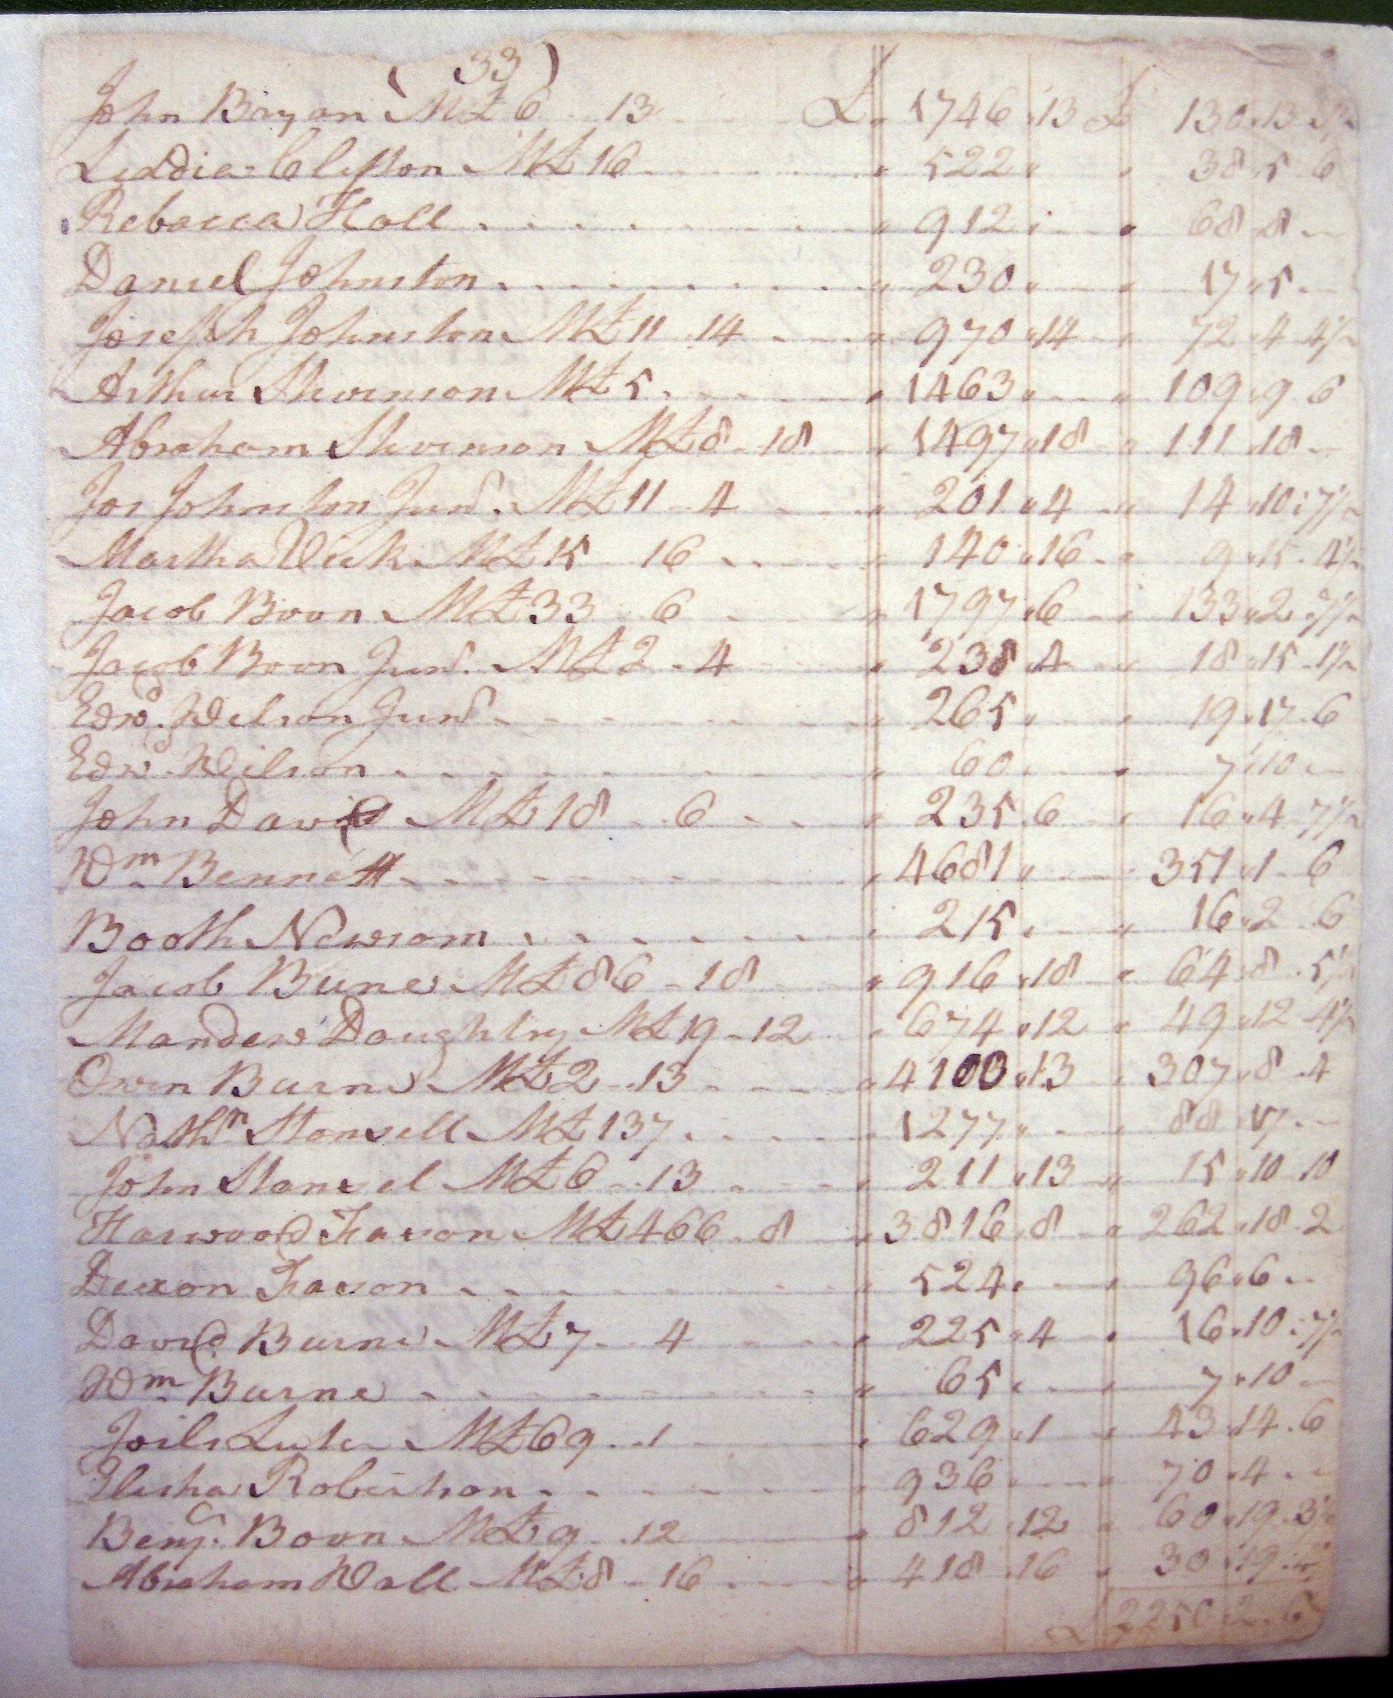 ( 33 )
John Bryan M£ 6 .. 13 £ 1746 " 13 £ 130 " 13 "
Liddia Clifton M£ 16 " 522 " " 38 " 5 .. 6
Rebacca Hall " 912 " " 68 " 8 --
Daniel Johnston " 230 " " 17 " 5 --
Joseph Johnston M£ 11 .. 14 " 970 " 14 " 72 .. 4 .. 4½
Arthur Stevenson M£ 5 " 1463 " " 109 " 9 .. 6
Abraham Stevenson M£ 8 .. 18 " 1497 " 18 " 111 " 18 --
Jos Johnston Junr. M£ 11 .. 4 " 201 " 4 " 14 " 10 : 7½
Martha Week M£ 15 .. 16 " 140 " 16 " 9 " 15 .. 4½
Jacob Boon M£ 33 .. 6 " 1797 " 6 " 133 " 2 .. 7½
Jacob Boon Junr. M£ 2 .. 4 " 238 " 4 " 18 " 15 .. 1½
Edwd. Wilson Junr " 265 " " 19 " 17 .. 6
Edwd Wilson " 60 " " 7 " 10 --
John David M£ 18 .. 6 " 235 " 6 " 16 " 4 .. 7½
Wm Bennett " 4681 " " 351 " 1 .. 6
Booth Newsom " 215 " " 16 " 2 .. 6
Jacob Burne M£ 86 .. 18 " 916 " 18 " 64 " 8 .. 5½
Mandew Daughtry M£ 19 .. 12 " 674 " 12 " 49 " 12 .. 4½
Owen Burne M£ 2 .. 13 " 4100 " 13 " 307 " 8 .. 4
Nathn Stansell M£ 137 " 1277 " " 88 " 17 --
John Stansel M£ 6 .. 13 " 211 " 13 " 15 " 10 .. 10
Harwood Fason M£ 466 .. 8 " 3816 " 8 " 262 " 18 .. 2
Dixon Fason " 524 " " 96 " 6 --
David Burne M£ 7 .. 4 " 225 " 4 " 16 " 10 : 7½
Wm Burne " 65 " " 7 " 10 --
M£ 69 .. 1 " 629 " 1 " 43 " 14 .. 6
Elisha Robertson " 936 " 70 " 4 --
Benj. Boon M£ 9 .. 12 " 812 " 12 " 60 " 19 .. 3½
Abraham Wall M£ 8 .. 16 " 418 " 16 " 30 " 19
£ 2250 .. 2 .. 6